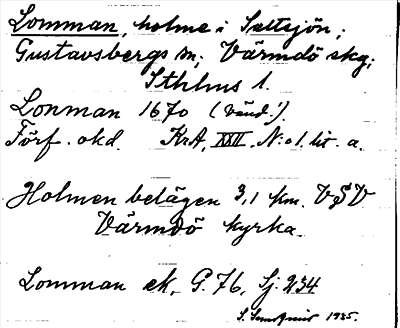 Lomman, holme i Saltsjön;
Gustavsbergs sn; Värmdö skg;
Sthlms l.
Lonman 1670 (vänd.).
Förf. okd. KrA, XXII, N:o 1. lit. a.
Holmen belägen 3,1 km. VSV
Värmdö kyrka.
Lomman ek, G. 76, Sj. 234
S. 1935.